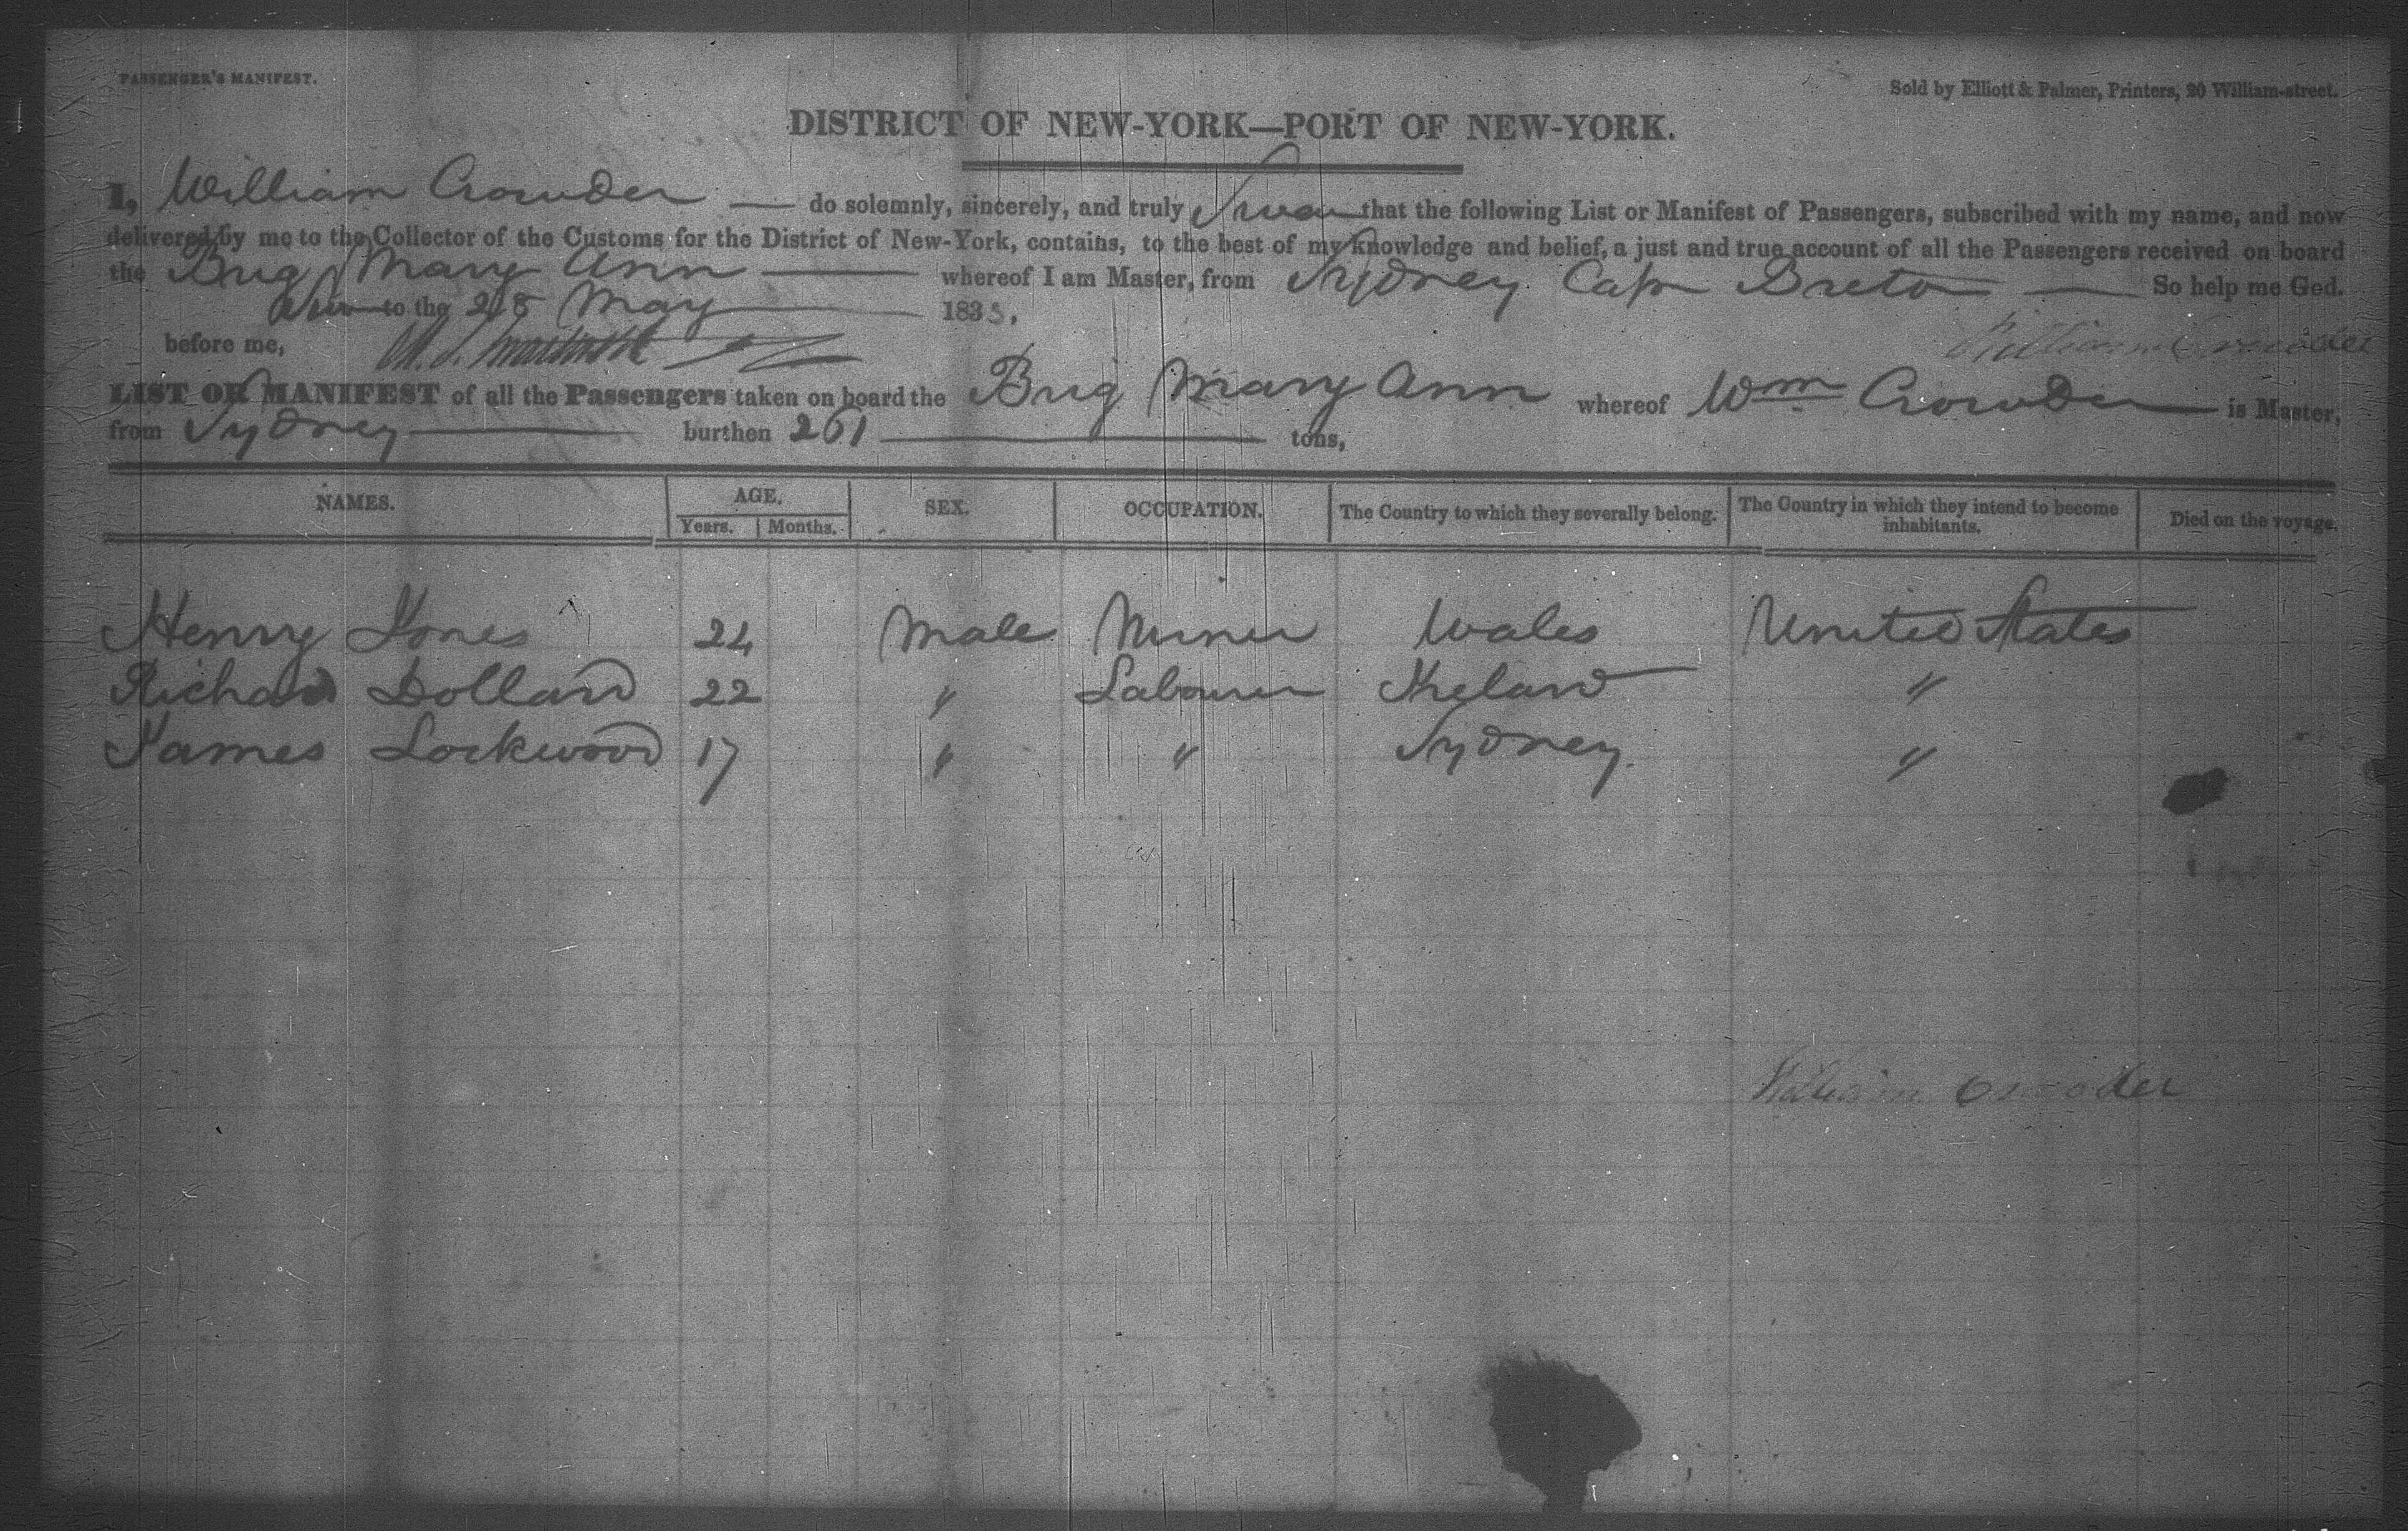 PASSENGER'S MANIFEST.
Sold by Elliott & Palmer, Printers, 20 William-street.
DISTRICT OF NEW-YORK—PORT OF NEW-YORK.
I, William Crowder — do solemnly, sincerely, and truly Swear that the following List or Manifest of Passengers, subscribed with my name, and now
delivered by me to the Collector of the Customs for the District of New-York, contains, to the best of my knowledge and belief, a just and true account of all the Passengers received on board
the Brig Mary Ann — whereof I am Master, from Sydney Cape Breton — So help me God.
to the 28 May 1835,
before me,
William Crowder
LIST OR MANIFEST of all the Passengers taken on board the Brig Mary Ann whereof Wm Crowder is Master,
from Sydney — burthen 261 — tons,
NAMES. AGE. SEX. OCCUPATION. The Country to which they severally belong. The Country in which they intend to become inhabitants. Died on the voyage.
Years. Months.
Henry Jones 24 Male Miner Wales United States
Richard Dollard 22 " Labourer Ireland "
James Lockwood 17 " " Sydney. "
William Crowder